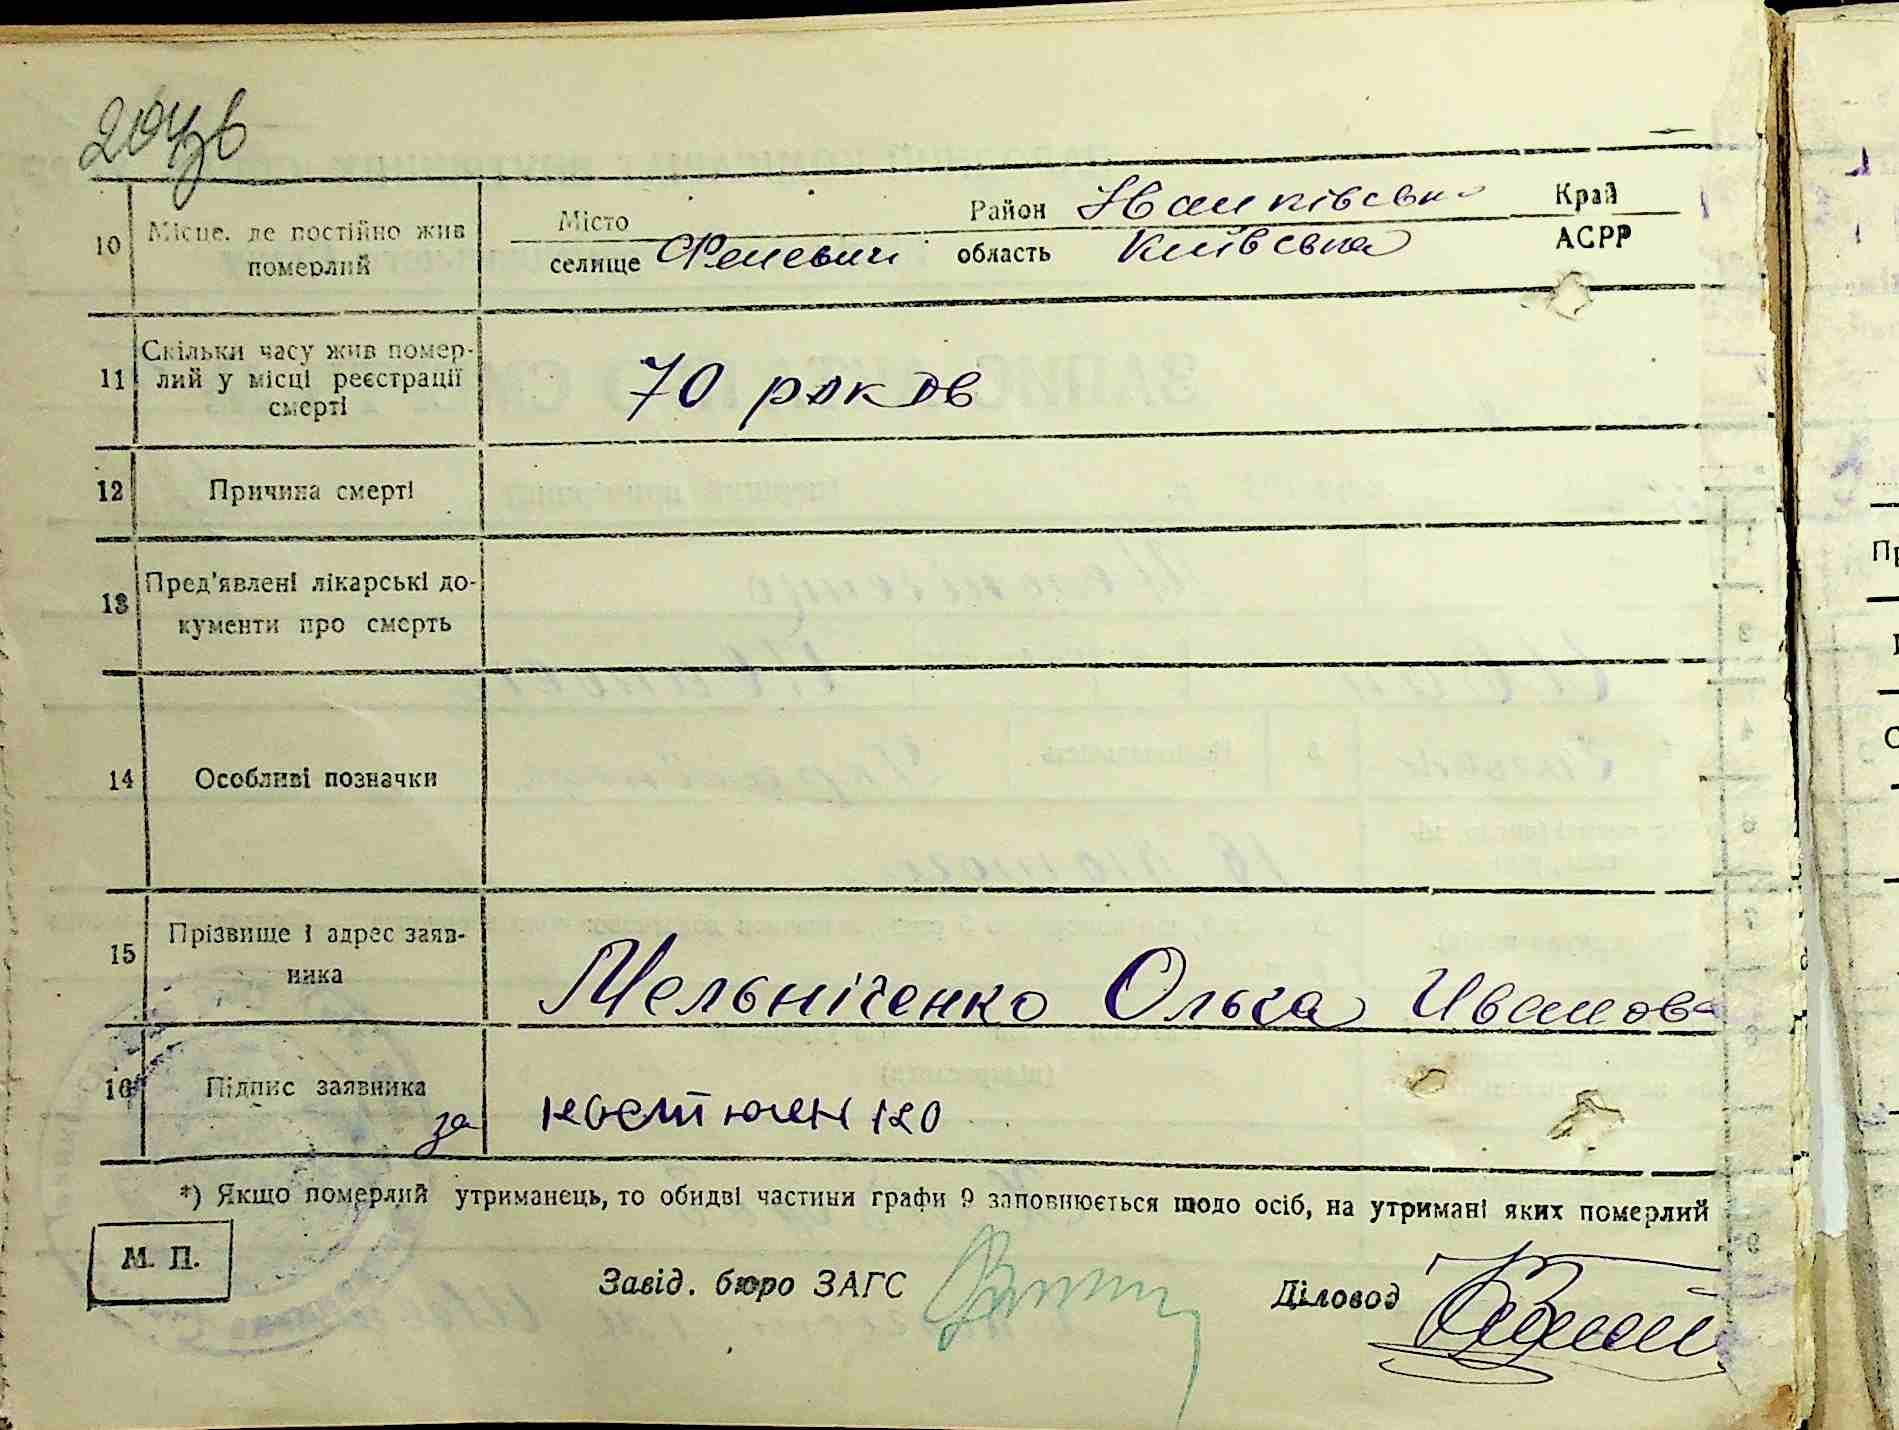 204зв
10 Місце, де постійно жив померлий Місто Район Іванківськ Край
селище Феневичі область Київська АСРР
11 Скільки часу жив помер-
лий у місці реєстрації
смерті
70 роков
12 Причина смерті
13 Пред'явлені лікарські до-
кументи про смерть
14 Особливі позначки
15 Прізвище і адрес заяв-
ника
Мельніченко Ольга Иванова
16 Підпис заявника
за костюченко
*) Якщо померлий утриманець, то обидві частини графи 9 заповнюється щодо осіб, на утримані яких померлий
М. П.
Завід. бюро ЗАГС Діловод